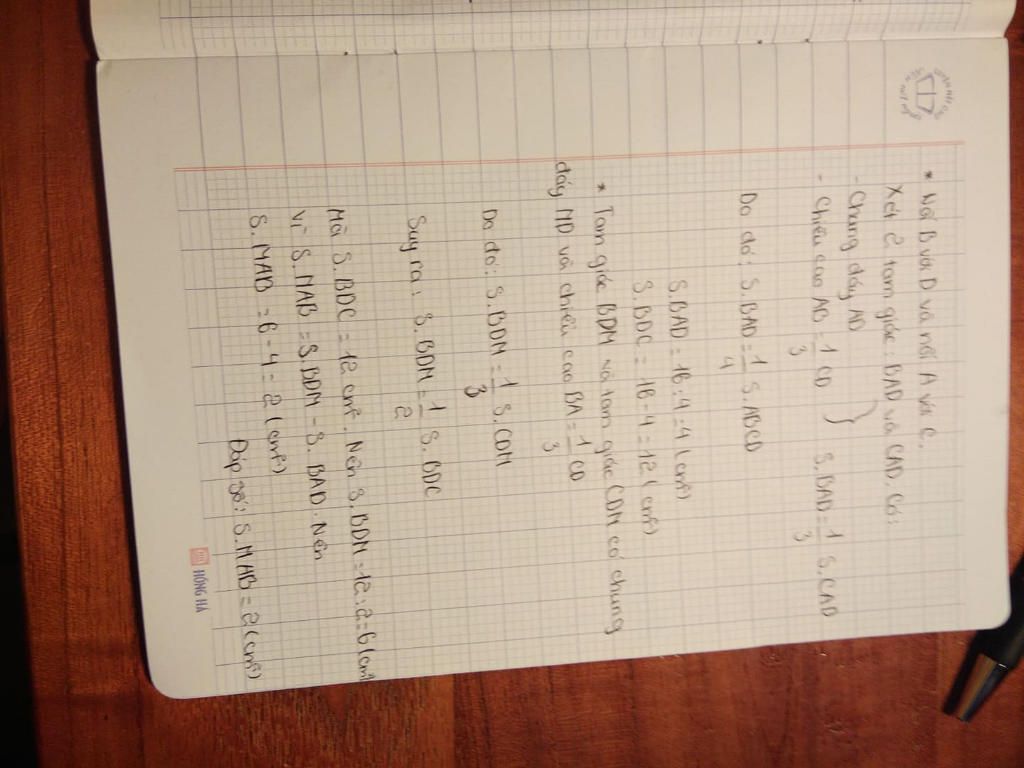 * Nối B với D và nối A với C.
Xét 2 tam giác: BAD và CAD. Có:
- Chung đáy AD
- Chiều cao AB = 1/3 CD } S.BAD = 1/3 S.CAD
Do đó: S.BAD = 1/4 S.ABCD
S.BAD = 16 : 4 = 4 (cm²)
S.BDC = 16 - 4 = 12 (cm²)
* Tam giác BDM và tam giác CDM có chung
đáy MD và chiều cao BA = 1/3 CD
Do đó: S.BDM = 1/3 S.CDM
Suy ra: S.BDM = 1/2 S.BDC
Mà S.BDC = 12 cm². Nên S.BDM = 12 : 2 = 6 (cm²
Vì S.MAB = S.BDM - S.BAD. Nên
S.MAB = 6 - 4 = 2 (cm²)
Đáp số: S.MAB = 2 (cm²)
HỒNG HÀ